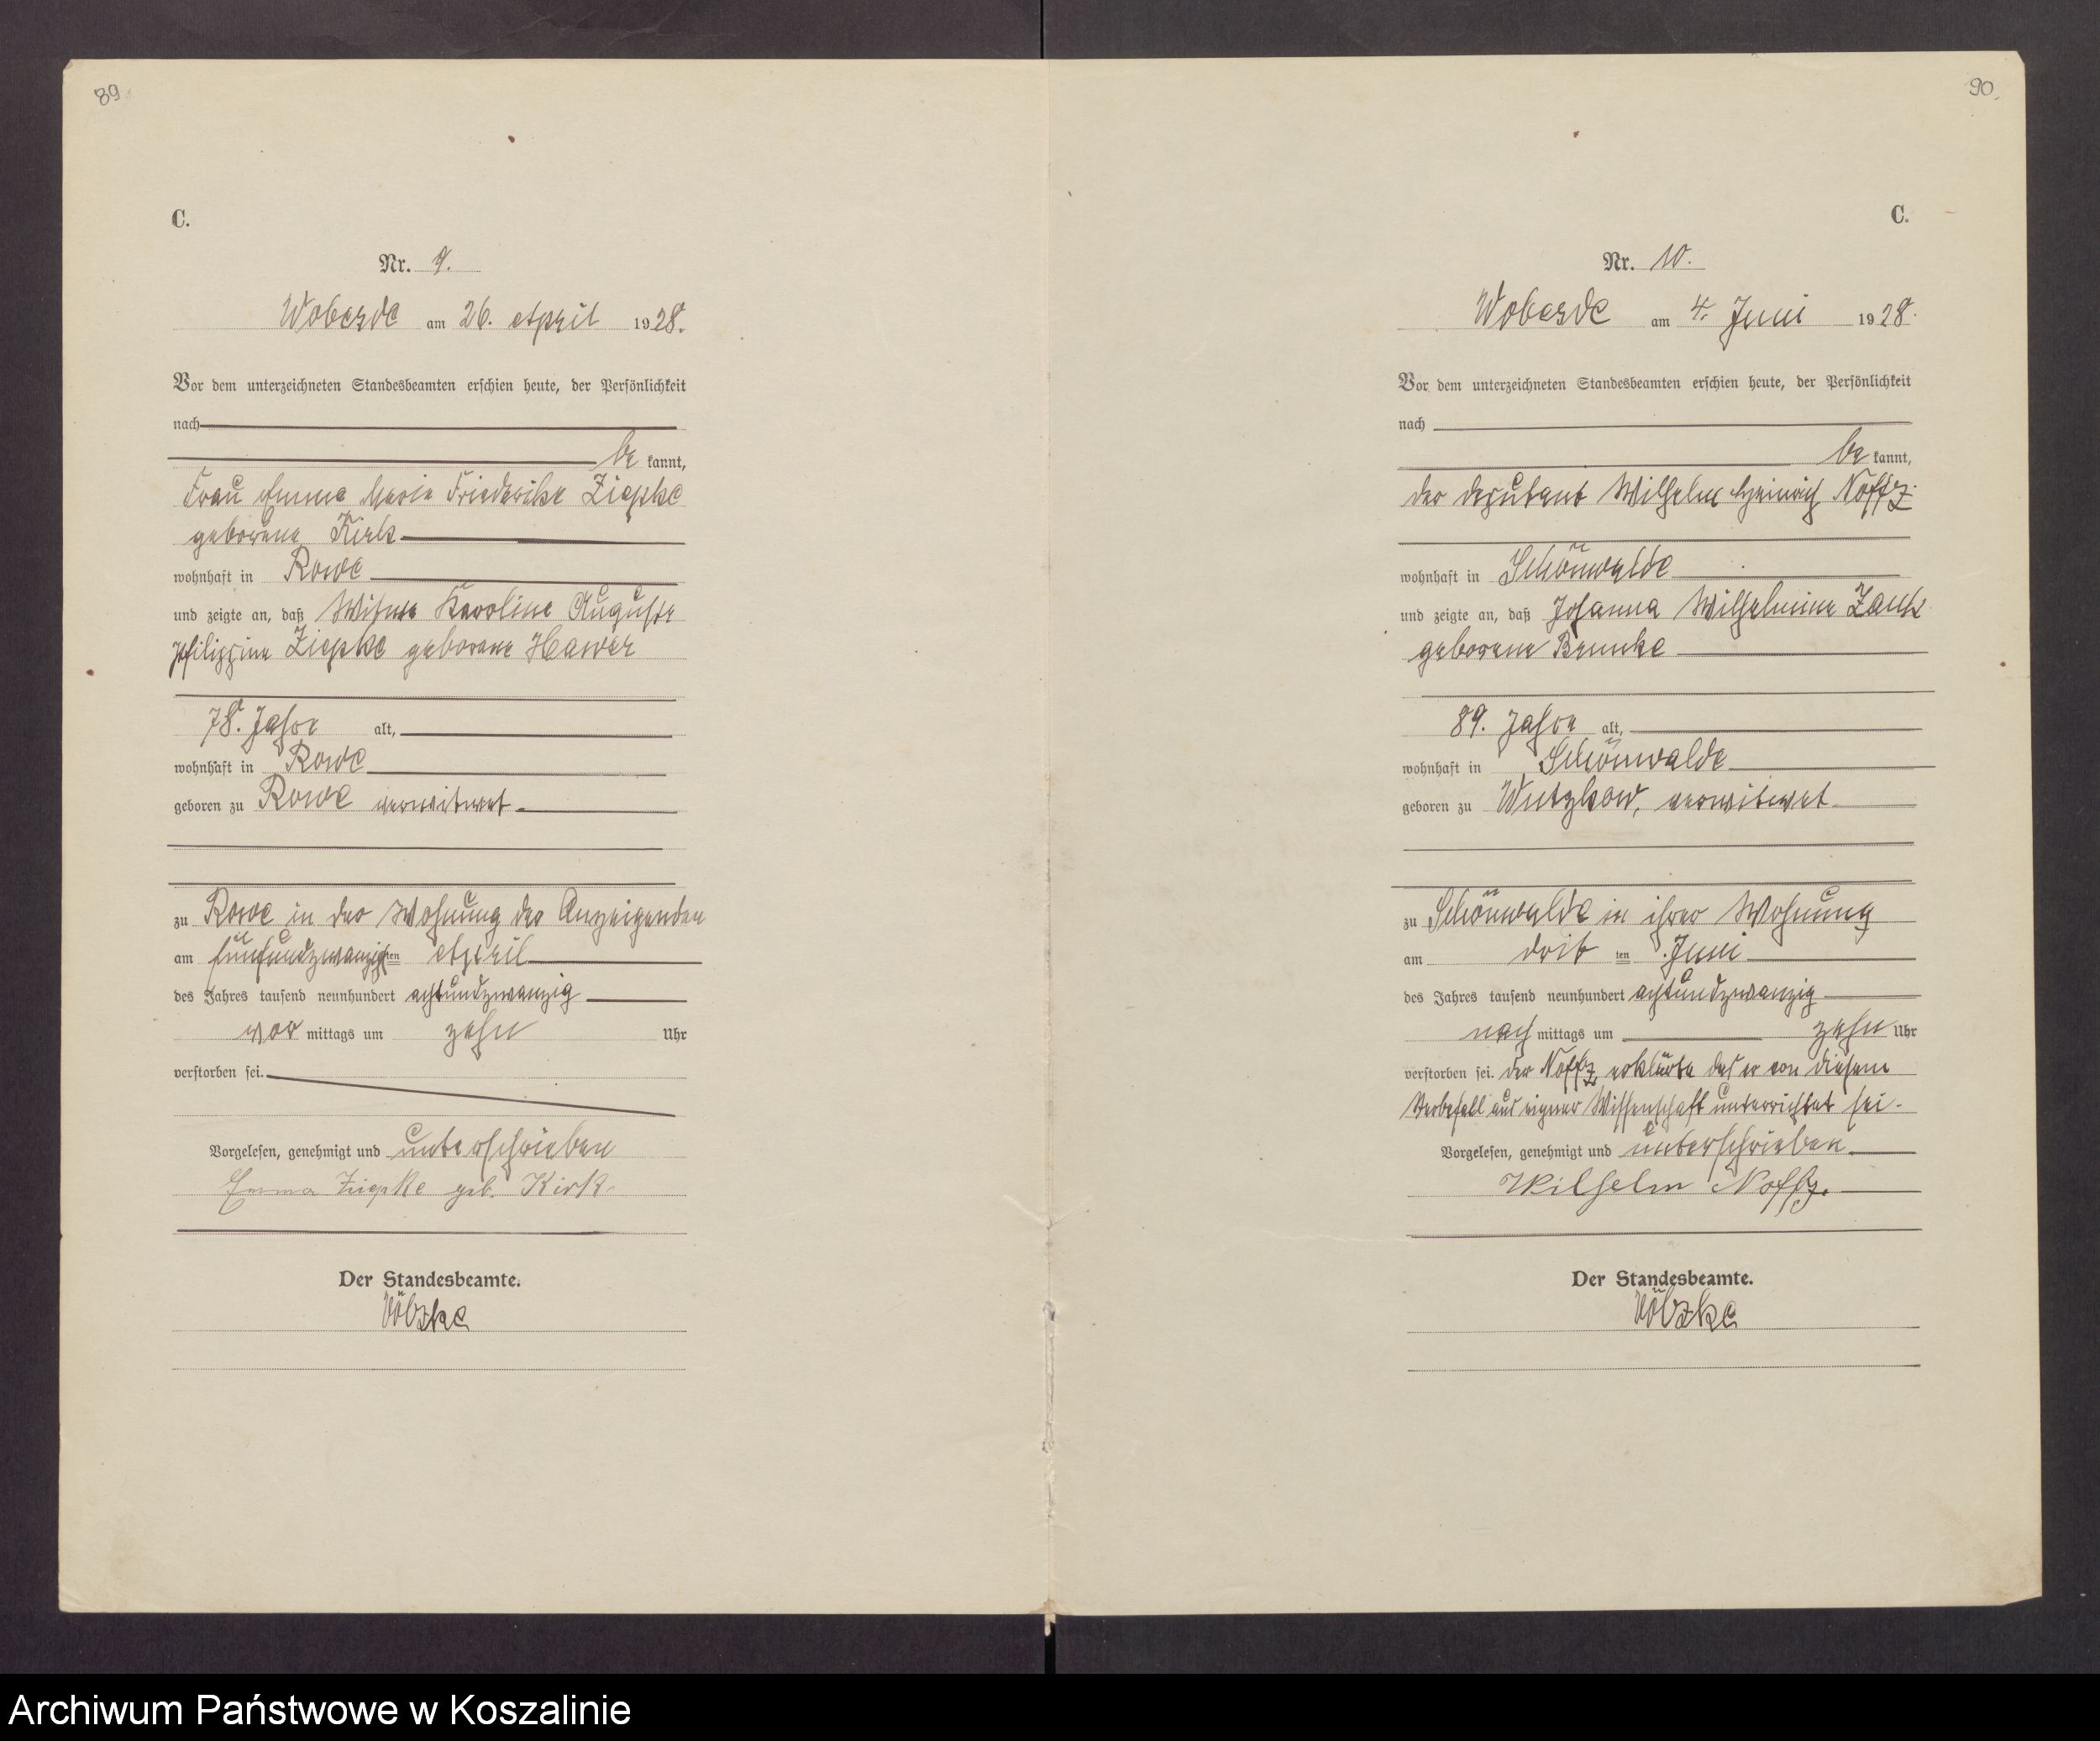 89
C.
Nr. 9.
Wobesde am 26. April 1928.
Vor dem unterzeichneten Standesbeamten erschien heute, der Persönlichkeit
nach
be kannt,
Frau Emma Marie Friederike Ziepke
geborene Kirk
wohnhaft in Rowe
und zeigte an, daß Witwe Karoline Auguste
Philippine Ziepke geborene Hawer
78. Jahre alt,
wohnhaft in Rowe
geboren zu Rowe verwitwet
zu Rowe in der Wohnung der Anzeigenden
am fünfundzwanzigsten April
des Jahres tausend neunhundert achtundzwanzig
vor mittags um zehn Uhr
verstorben sei.
Vorgelesen, genehmigt und unterschrieben
Emma Ziepke geb. Kirk
Der Standesbeamte.
Völzke
90.
C.
Nr. 10.
Wobesde am 4. Juni 1928.
Vor dem unterzeichneten Standesbeamten erschien heute, der Persönlichkeit
nach
be kannt,
der Deputant Wilhelm Heinrich Noffz.
wohnhaft in Schönwalde
und zeigte an, daß Johanna Wilhelmine Zauk
geborene Bennke
89. Jahre alt,
wohnhaft in Schönwalde
geboren zu Wutzkow, verwitwet
zu Schönwalde in ihrer Wohnung
am drit ten Juni
des Jahres tausend neunhundert achtundzwanzig
nach mittags um zehn Uhr
verstorben sei. Der Noffz erklärte daß er von diesem
Sterbefall aus eigner Wissenschaft unterrichtet sei.
Vorgelesen, genehmigt und unterschrieben
Wilhelm Noffz.
Der Standesbeamte.
Völzke
Archiwum Państwowe w Koszalinie